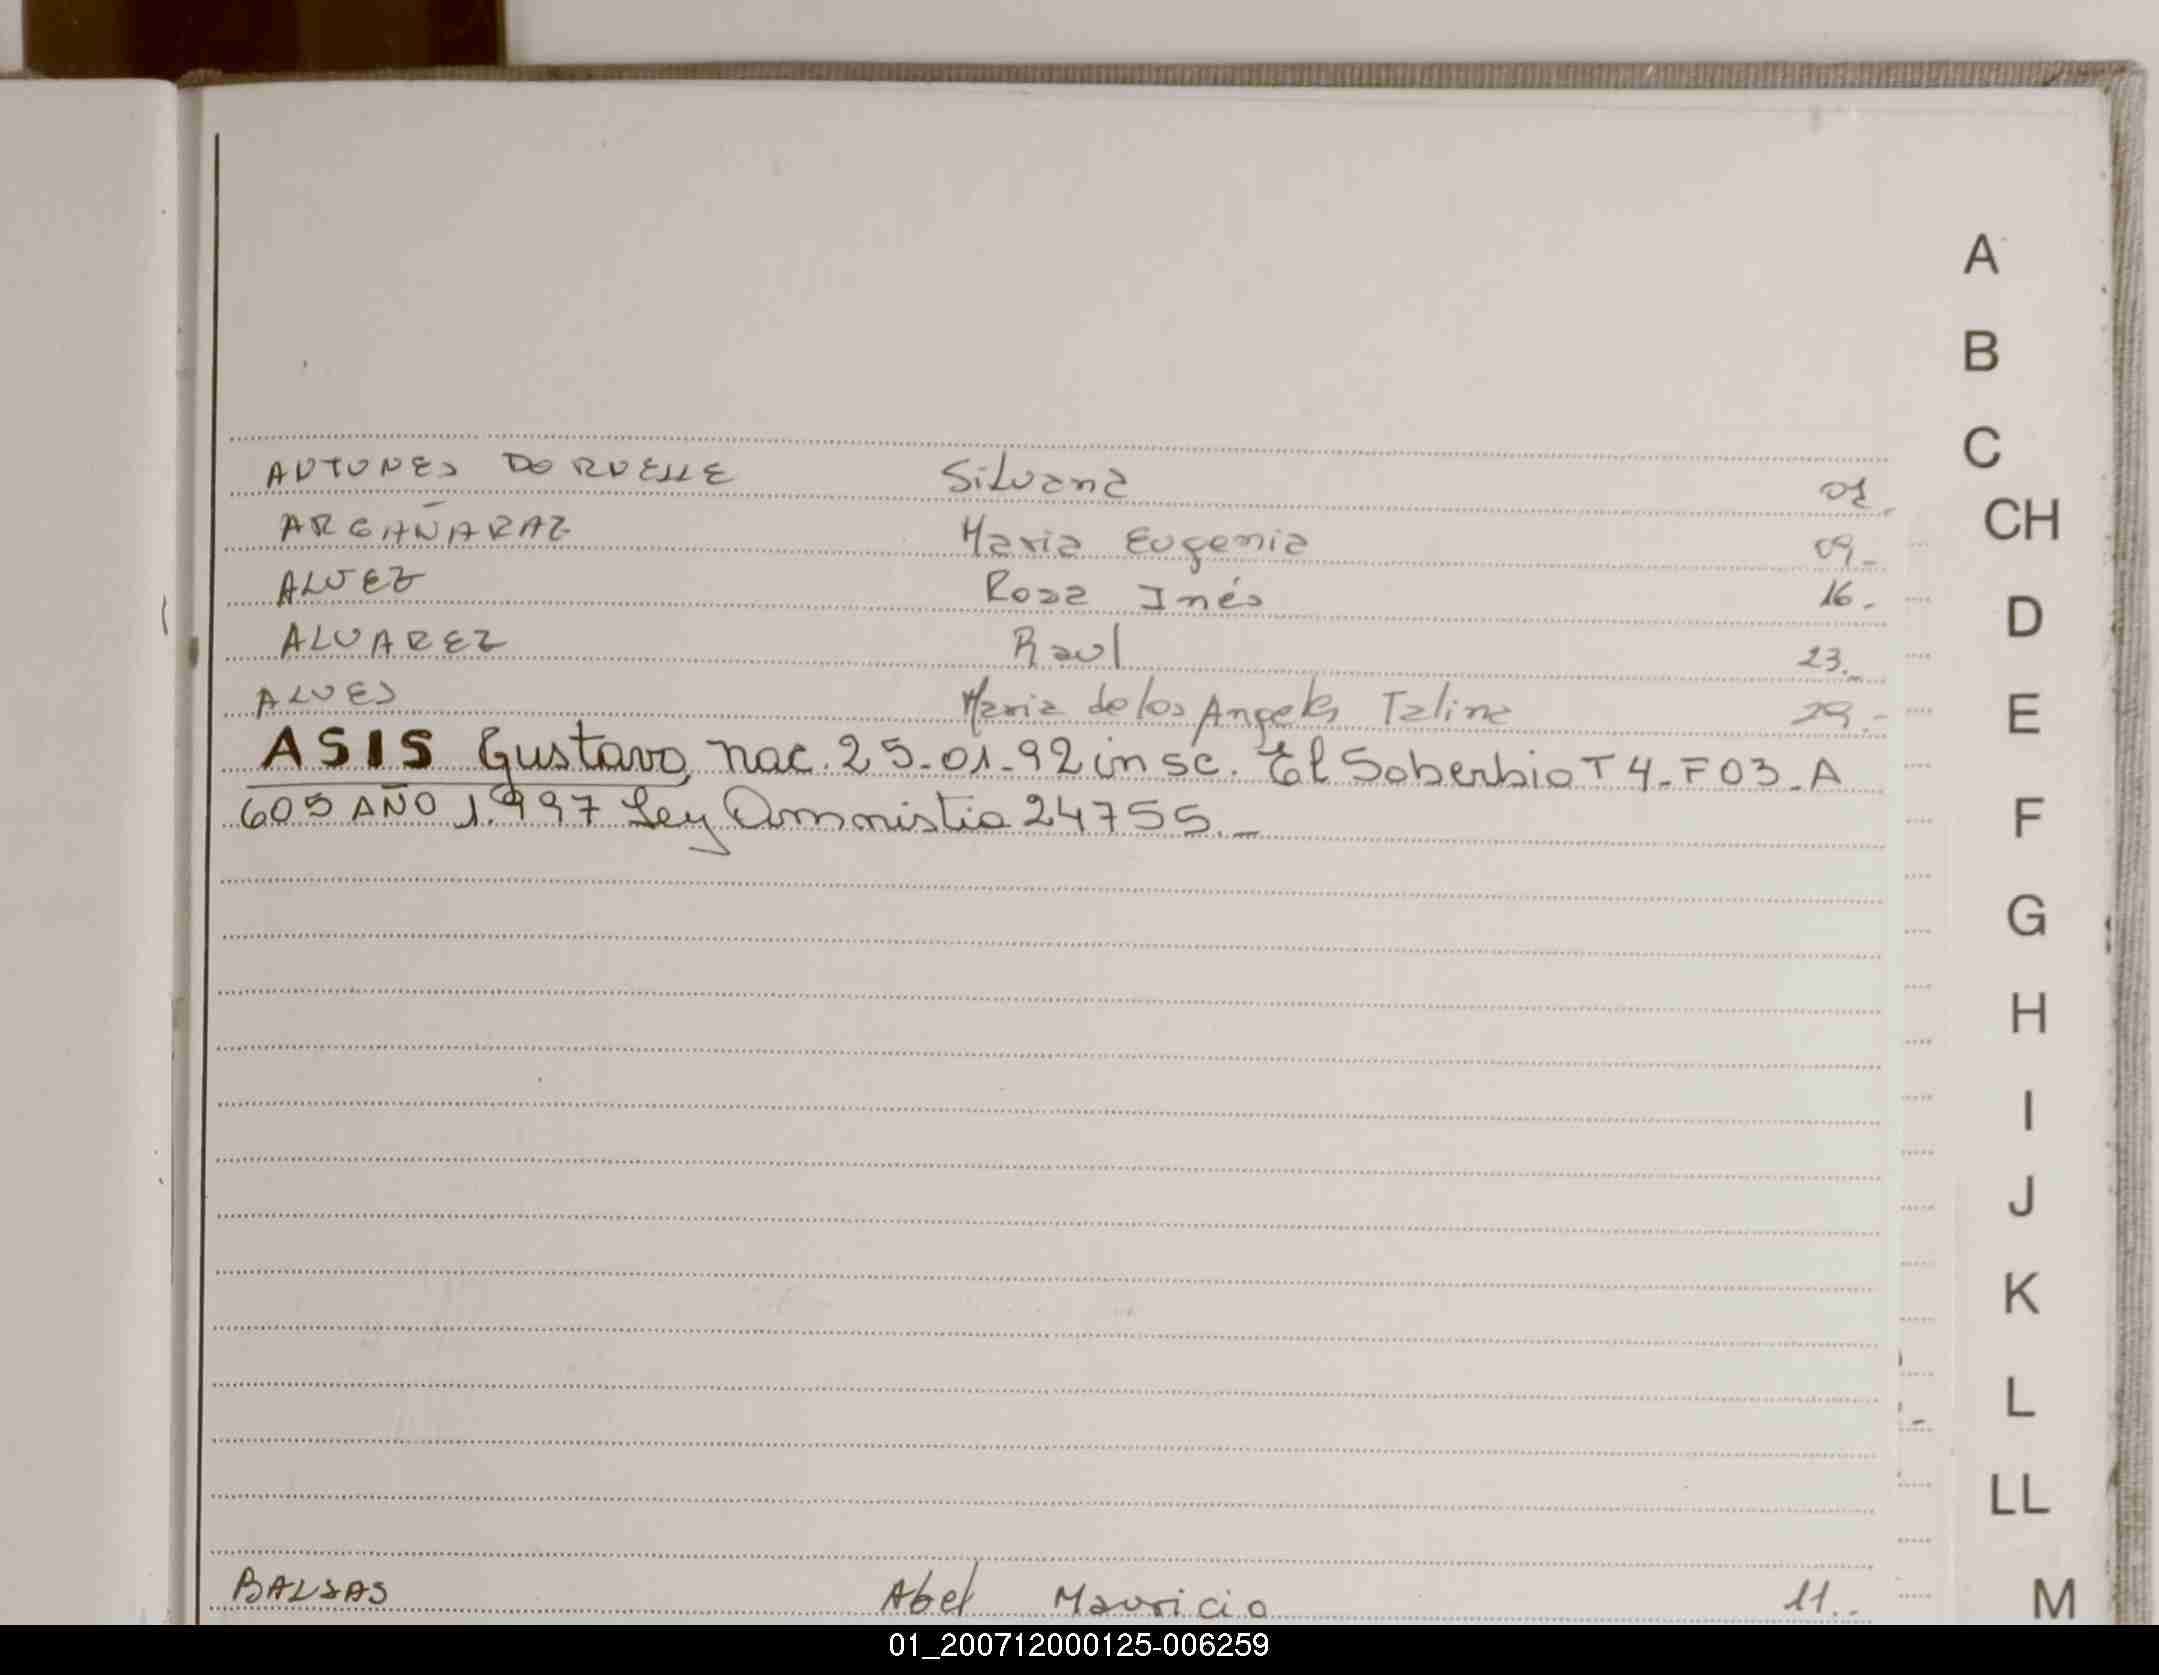 ANTUNES DORNELLE Silvana 02.
ARGAÑARAZ Maria Eugenia 09.
ALVEZ Rosa Inés 16.
ALVAREZ Raul 23.
ALVES Maria de los Angeles Taline 29.
ASIS Gustavo, nac. 25-01-92 insc. El Soberbio T 4-F03-A
605 AÑO 1.997 Ley Amnistia 24755.-
BALSAS Abel Mauricio 11.
A
B
C
CH
D
E
F
G
H
I
J
K
L
LL
M
01_200712000125-006259